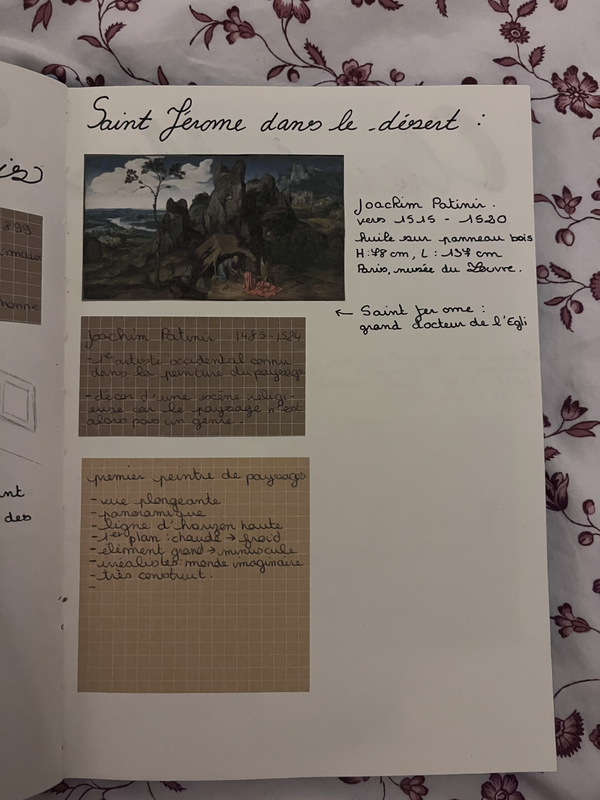 Saint Jerome dans le désert :
Joachim Patinir.
vers 1515 - 1520
huile sur panneau bois
H:78 cm, L : 137 cm
Paris, musée du Louvre.
← Saint Jerome :
grand docteur de l'Egli
Joachim Patinir 1485-1524
- 1er artiste occidental connu
dans la peinture du paysage
- décor d'une scène religi-
euse car le paysage n'est
alors pas un genre.
premier peintre de paysages
- vue plongeante
- panoramique
- ligne d'horizon haute
- 1er plan : chaude → froid
- élément grand → minuscule
- irréalistes: monde imaginaire
- très construit.
-
899
nt
des